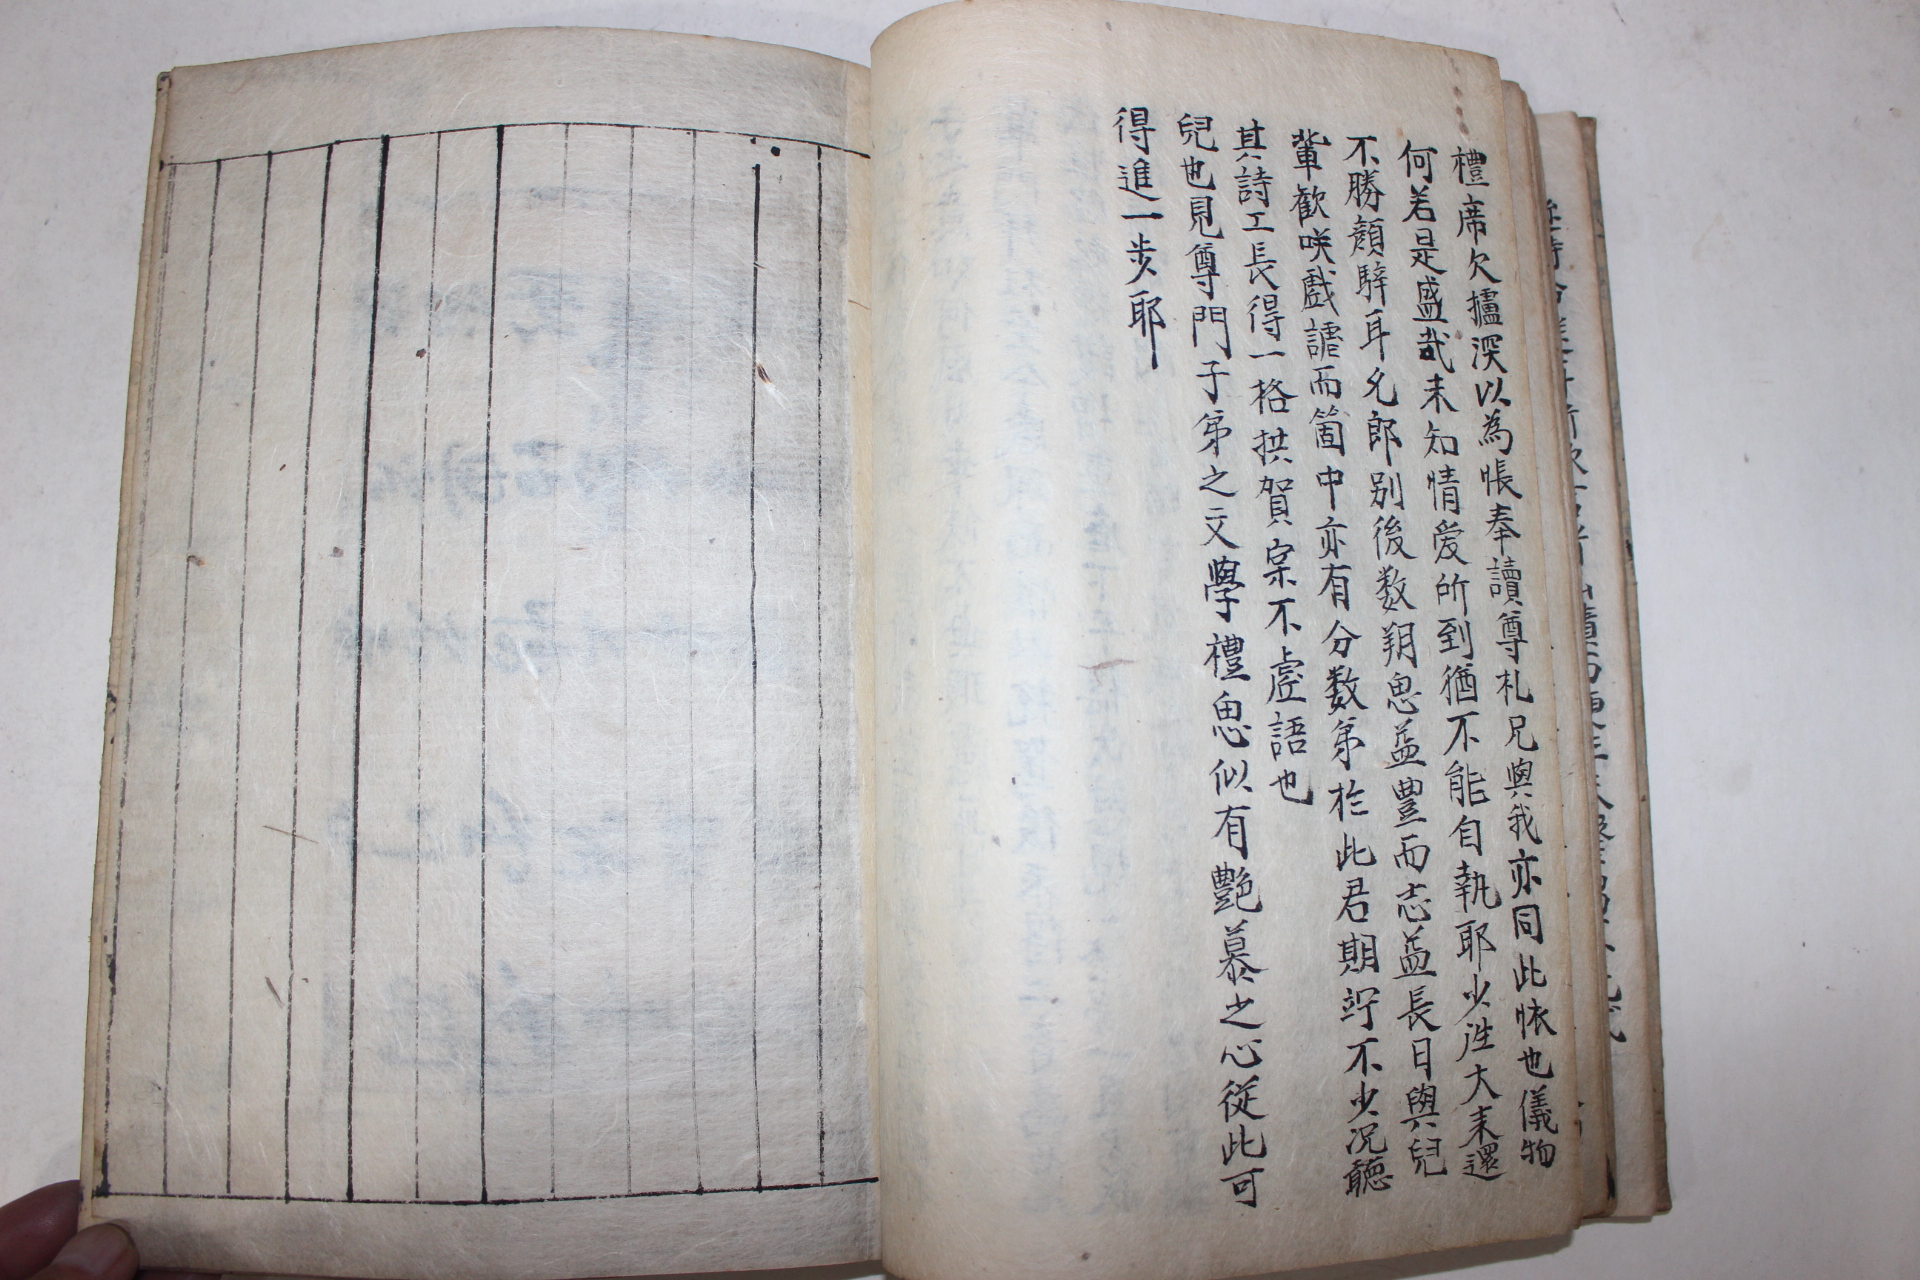 禮席欠攄深以為悵奉讀尊札兄與我亦同此悵也儀物
何若是盛哉未知情愛所到猶不能自執耶少往大來還
不勝顏騂耳允郎別後数朔思益豊而志益長日與兒
輩歡咲戲謔而箇中亦有分数第於此君期竚不少况聽
其詩工長得一格拱賀宲不虛語也
兒也見尊門子弟之文學禮思似有艶慕之心從此可
得進一步耶